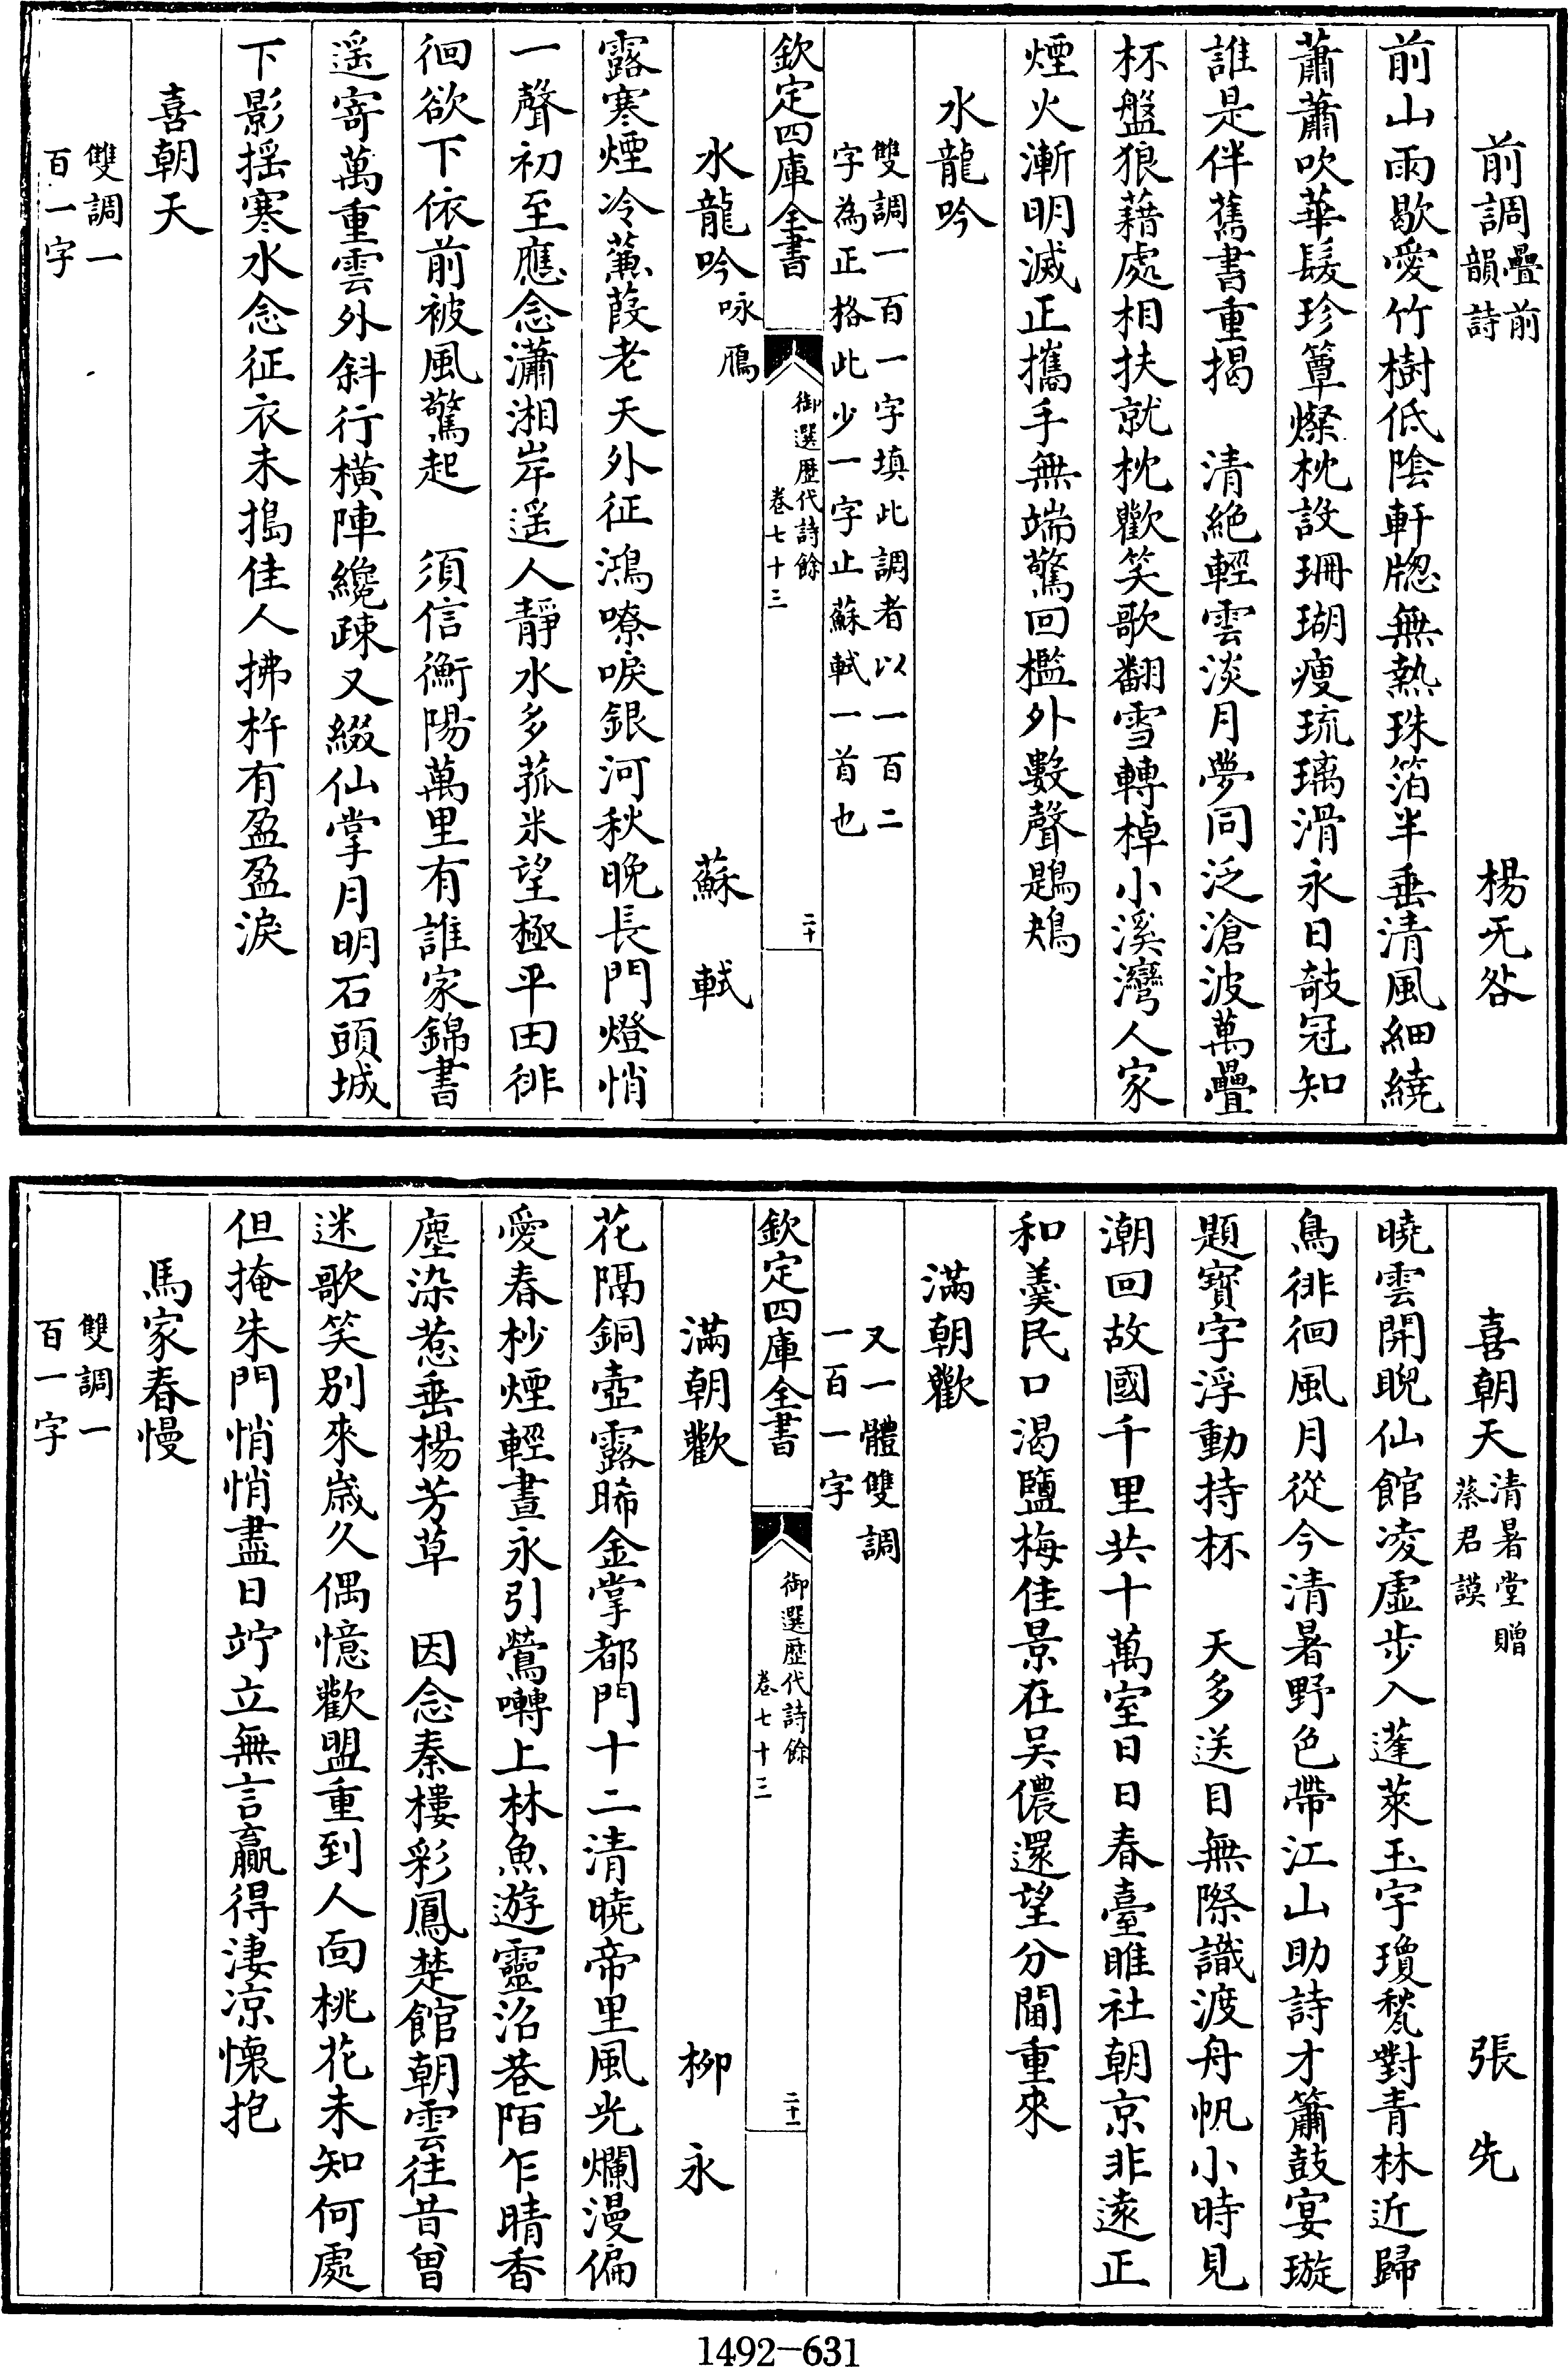 前調疊前韻詩 楊无咎
前山雨歇愛竹樹低陰軒牕無熱珠箔半垂清風細繞
蕭蕭吹華髮珍簟燦枕設珊瑚瘦琉璃滑永日攲冠知
誰是伴舊書重揭 清絶輕雲淡月夢同泛滄波萬疊
杯盤狼藉處相扶就枕歡笑歌翻雪轉棹小溪灣人家
煙火漸明滅正攜手無端驚回檻外數聲鶗鴂
水龍吟
雙調一百一字填此調者以一百二
字為正格此少一字止蘇軾一首也
欽定四庫全書 御選歷代詩餘 卷七十三 二十
水龍吟咏鴈 蘇軾
露寒煙冷蒹葭老天外征鴻嘹唳銀河秋晚長門燈悄
一聲初至應念瀟湘岸遥人靜水多菰米望極平田徘
徊欲下依前被風驚起 須信衡陽萬里有誰家錦書
遥寄萬重雲外斜行橫陣纔疎又綴仙掌月明石頭城
下影揺寒水念征衣未搗佳人拂杵有盈盈淚
喜朝天
雙調一
百一字
喜朝天清暑堂贈蔡君謨 張先
曉雲開睨仙館凌虛步入蓬萊玉宇瓊甃對青林近歸
鳥徘徊風月從今清暑野色帶江山助詩才簫鼓宴璇
題寶字浮動持杯 天多送目無際識渡舟帆小時見
潮回故國千里共十萬室日日春臺睢社朝京非遠正
和羹民口渴鹽梅佳景在吴儂還望分閫重來
滿朝歡
又一體雙調
一百一字
欽定四庫全書 御選歷代詩餘 卷七十三 二十一
滿朝歡 柳永
花隔銅壺露晞金掌都門十二清曉帝里風光爛漫偏
愛春杪煙輕晝永引鶯囀上林魚游靈沼巷陌乍晴香
塵染惹垂楊芳草 因念秦樓彩鳳楚館朝雲往昔曾
迷歌笑别來嵗久偶憶歡盟重到人面桃花未知何處
但掩朱門悄悄盡日竚立無言贏得淒凉懷抱
馬家春慢
雙調一
百一字
1492-631